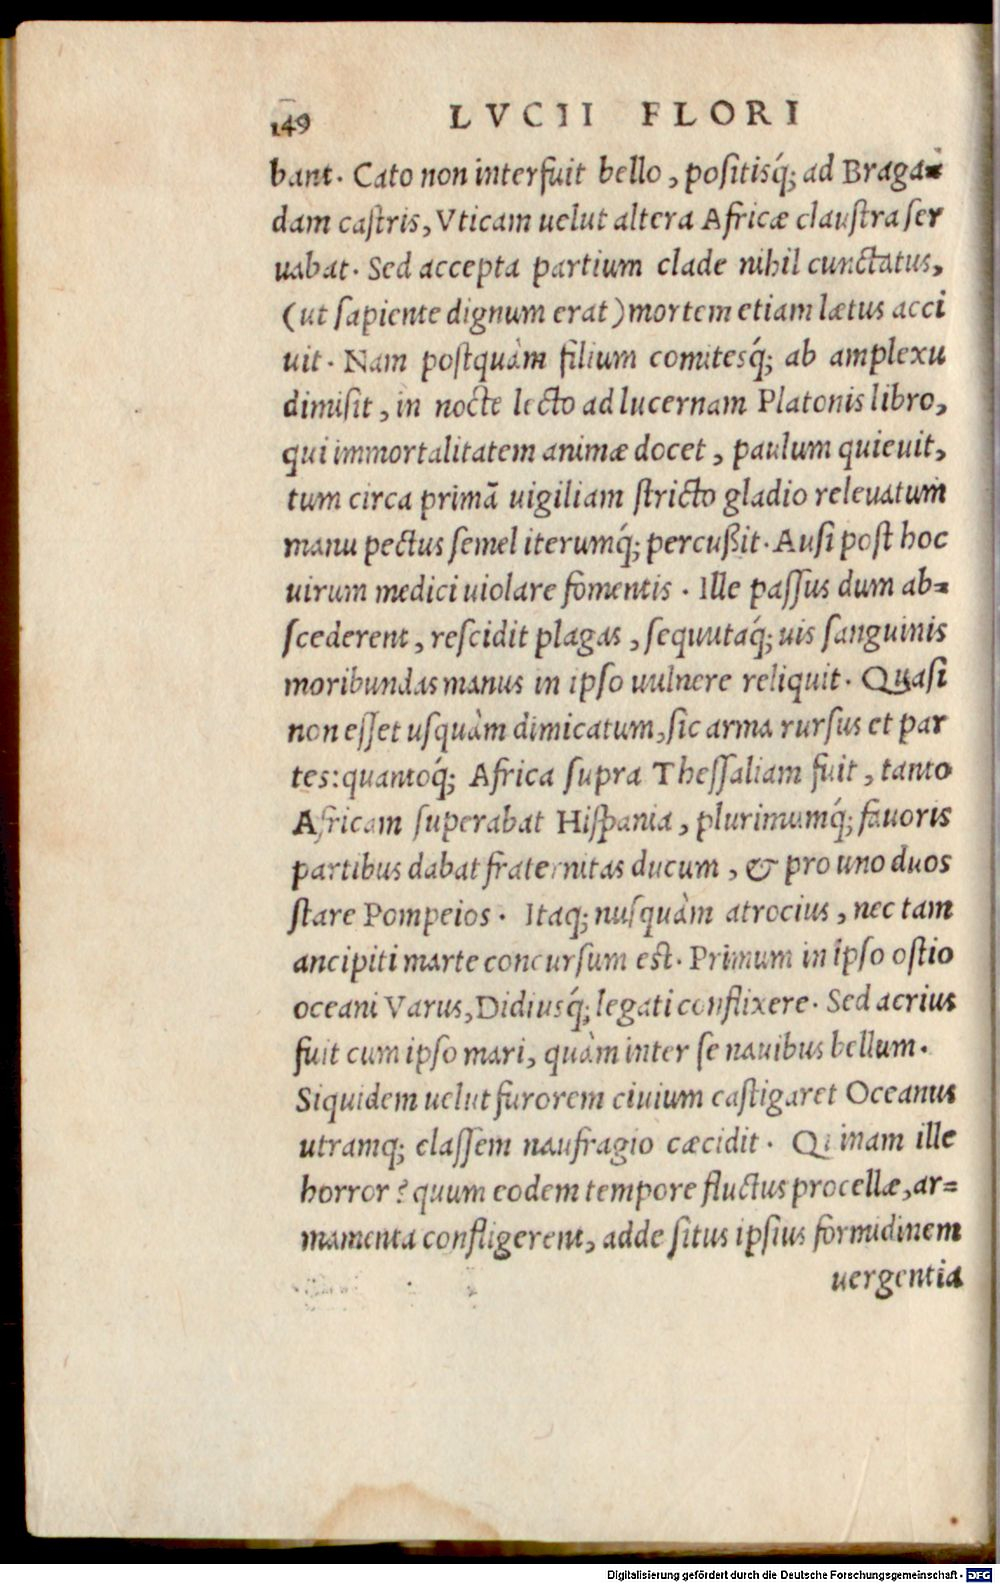 149 LVCII FLORI
bant. Cato non interfuit bello, positisq́; ad Braga=
dam castris, Vticam uelut altera Africæ claustra ser
uabat. Sed accepta partium clade nihil cunctatus,
(ut sapiente dignum erat) mortem etiam lætus acci
uit. Nam postquàm filium comitesq́; ab amplexu
dimisit, in nocte lecto ad lucernam Platonis libro,
qui immortalitatem animæ docet, paulum quieuit,
tum circa primā uigiliam stricto gladio releuatum
manu pectus semel iterumq́; percußit. Ausi post hoc
uirum medici uiolare fomentis. Ille passus dum ab=
scederent, rescidit plagas, sequutaq́; uis sanguinis
moribundas manus in ipso uulnere reliquit. Quasi
non esset usquàm dimicatum, sic arma rursus et par
tes: quantoq́; Africa supra Thessaliam fuit, tanto
Africam superabat Hispania, plurimumq́; fauoris
partibus dabat fraternitas ducum, & pro uno duos
stare Pompeios. Itaq; nusquàm atrocius, nec tam
ancipiti marte concursum est. Primum in ipso ostio
oceani Varus, Didiusq́; legati conflixere. Sed acrius
fuit cum ipso mari, quàm inter se nauibus bellum.
Siquidem uelut furorem ciuium castigaret Oceanus
utramq; classem naufragio cæcidit. Quinam ille
horror? quum eodem tempore fluctus procellæ, ar=
mamenta confligerent, adde situs ipsius formidinem
uergentia
Digitalisierung gefördert durch die Deutsche Forschungsgemeinschaft - DFG